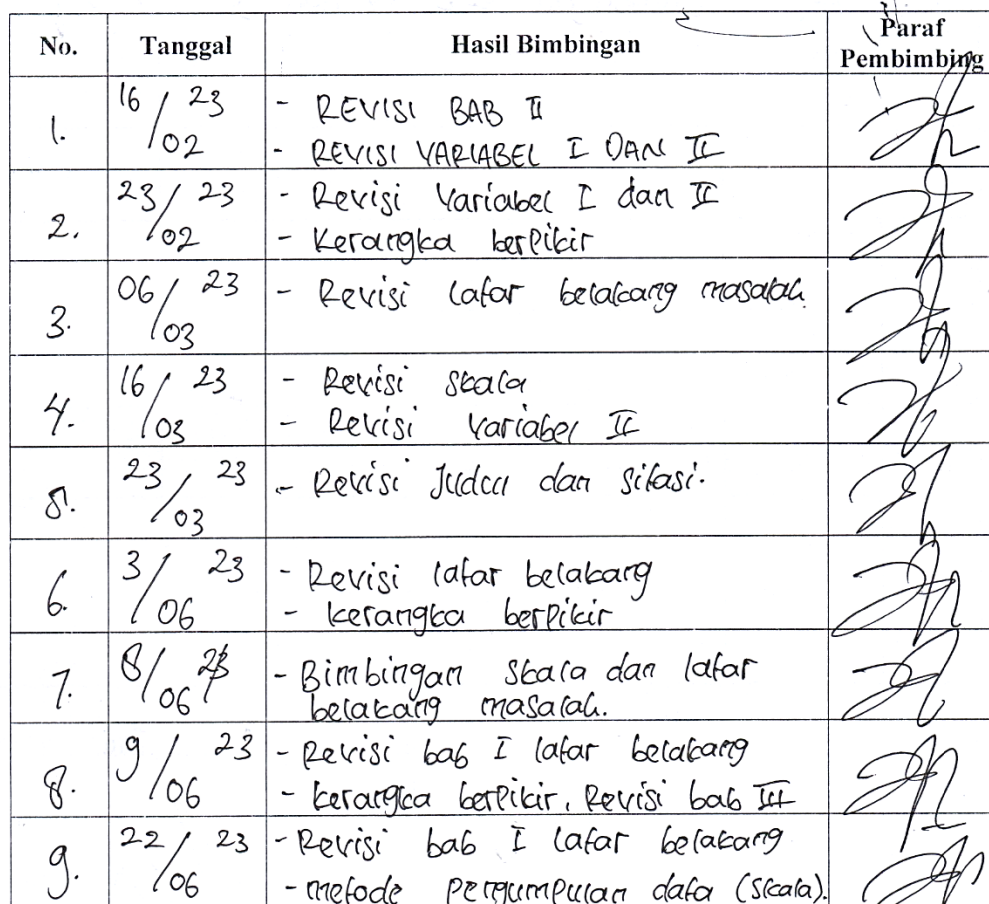 No. Tanggal Hasil Bimbingan Paraf
Pembimbing
1. 16/02 23 - REVISI BAB II
- REVISI VARIABEL I DAN II
2. 23/02 23 - Revisi Variabel I dan II
- Kerangka berpikir
3. 06/03 23 - Revisi latar belakang masalah.
4. 16/03 23 - Revisi skala
- Revisi Variabel II
5. 23/03 23 - Revisi Judul dan sitasi.
6. 3/06 23 - Revisi latar belakang
- kerangka berpikir
7. 8/06 23 - Bimbingan skala dan latar
belakang masalah.
8. 9/06 23 - Revisi bab I latar belakang
- kerangka berpikir, Revisi bab III
9. 22/06 23 - Revisi bab I latar belakang
- metode pengumpulan data (skala).